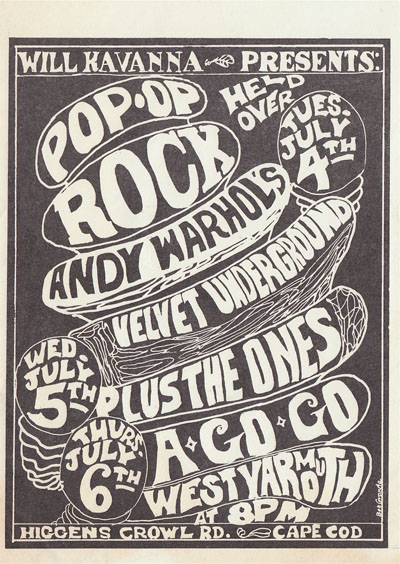 WILL KAVANNA PRESENTS:
POP-OP
ROCK
HELD
OVER
TUES.
JULY
4TH
ANDY WARHOLS
VELVET UNDERGROUND
PLUS THE ONES
WED.
JULY
5TH
A-GO-GO
THURS.
JULY
6TH
WEST YARMOUTH
AT 8PM
HIGGENS CROWL RD. CAPE COD